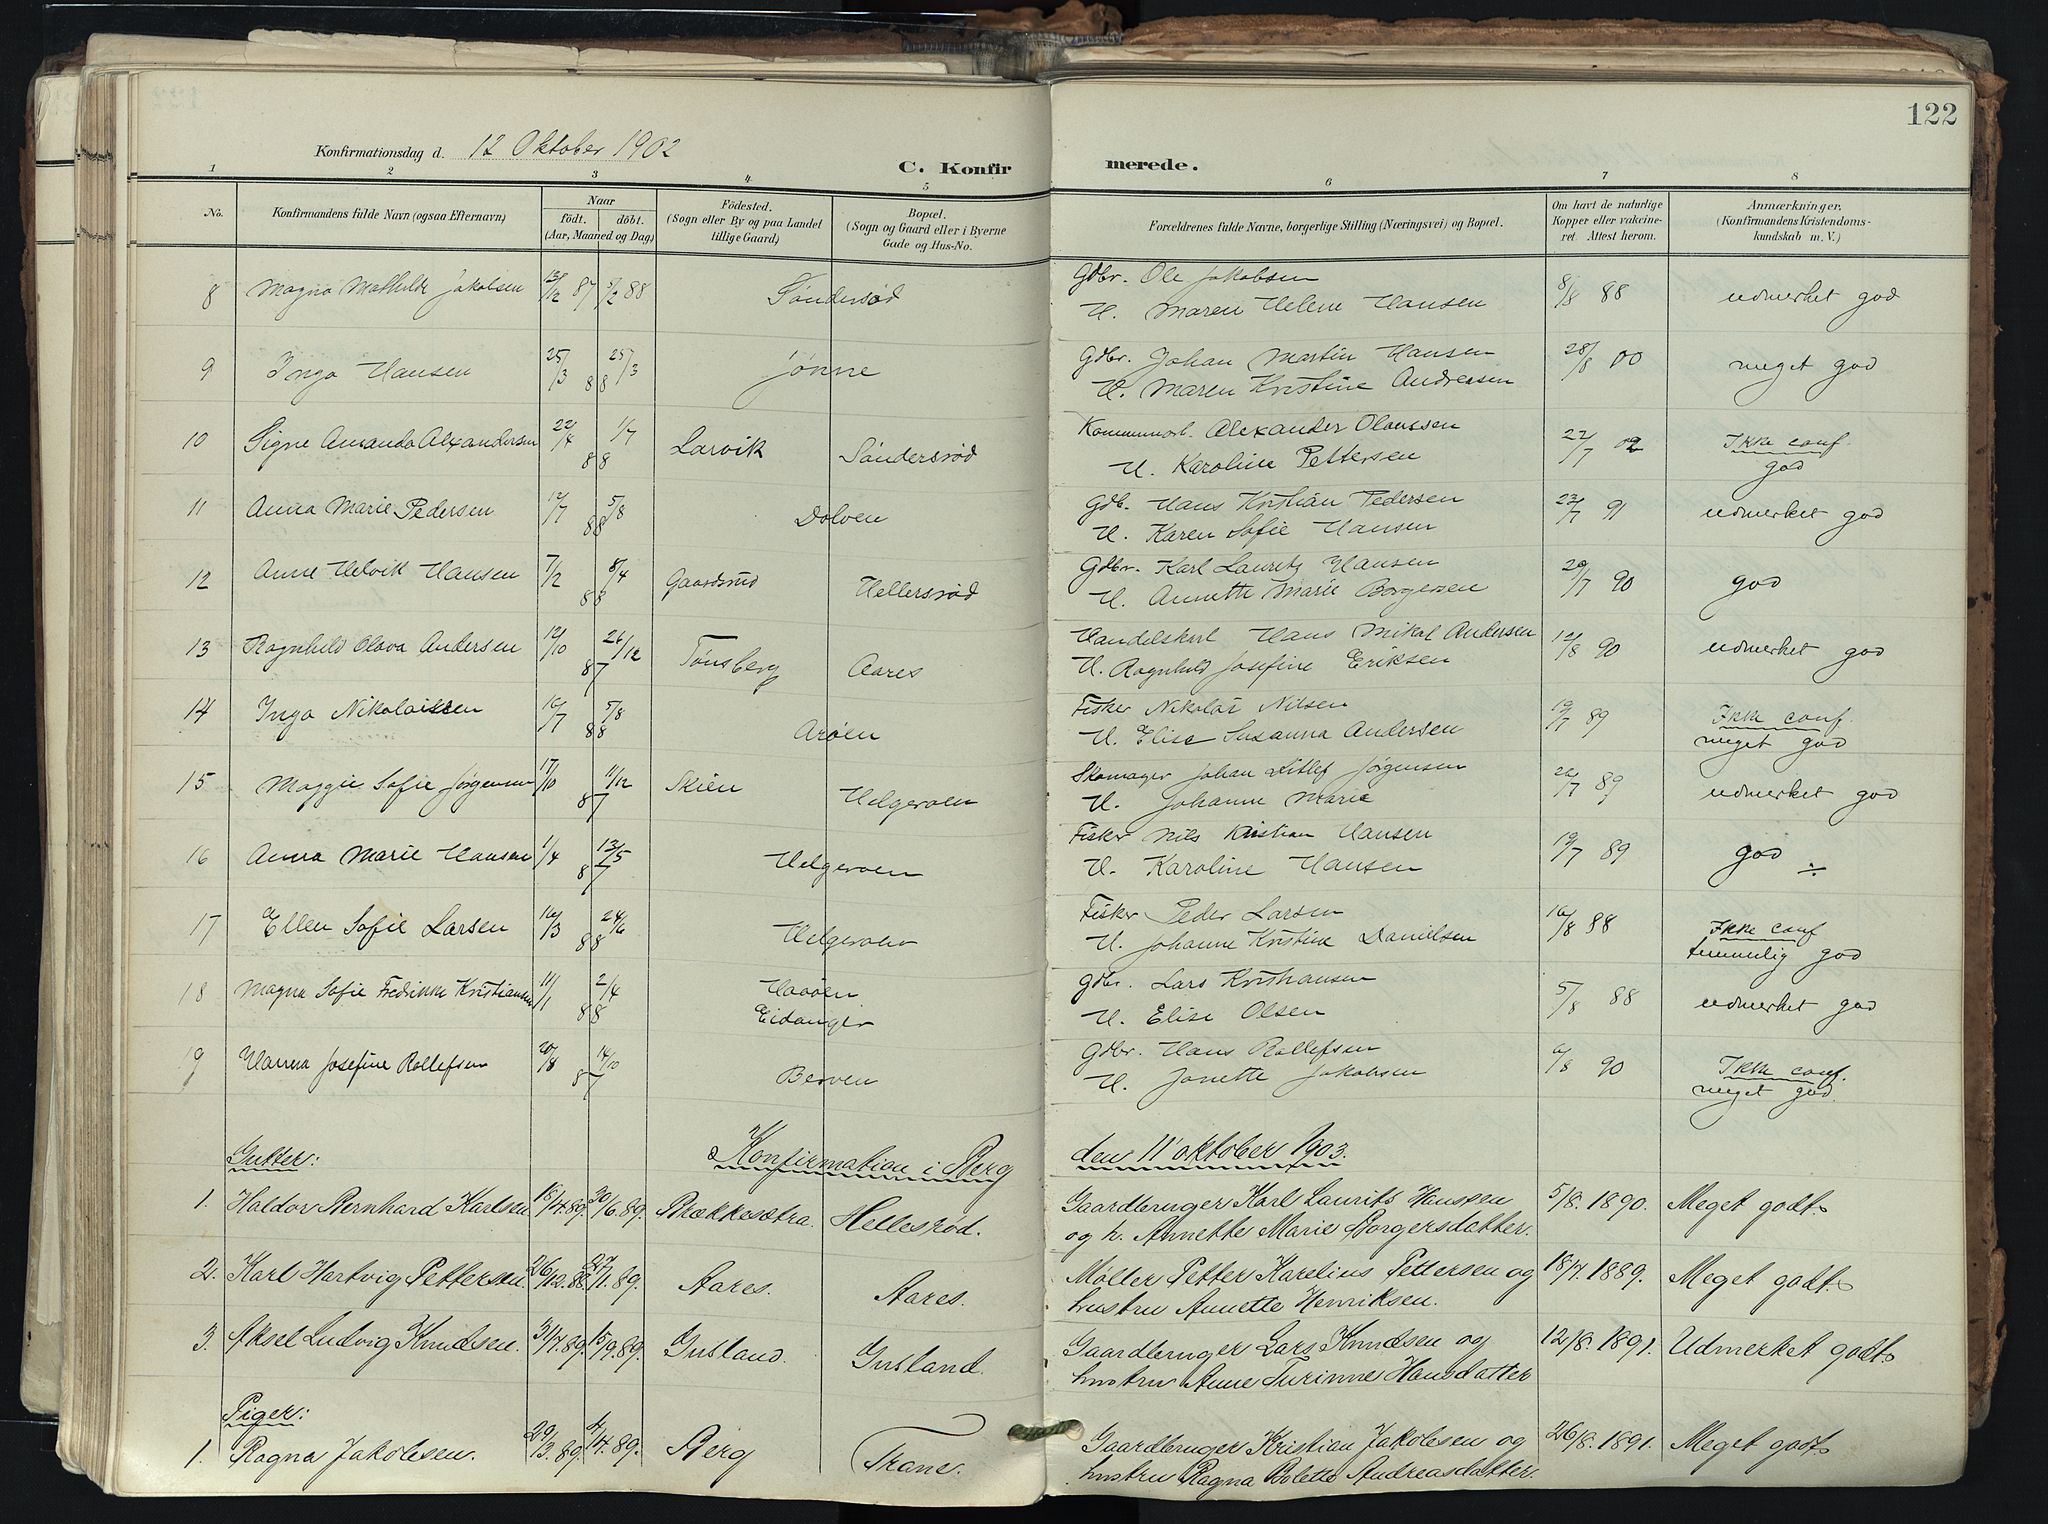 122
Konfirmationsdag d. 12 Oktober 1902
C. Konfirmerede.
1 2 3 4 5 6 7 8
No. Konfirmandens fulde Navn (ogsaa Efternavn) Naar födt. döbt. (Aar, Maaned og Dag) Födested. (Sogn eller By og paa Landet tillige Gaard) Bopæl. (Sogn og Gaard eller i Byerne Gade og Hus-No. Forældrenes fulde Navne, borgerlige Stilling (Næringsvei) og Bopæl. Om havt de naturlige Kopper eller vakcineret. Attest herom. Anmærkninger. (Konfirmandens Kristendomskundskab m. V.)
8 Magna Mathilde Jakobsen 13/12 87 5/2 88 Söndersöd Gdbr. Ole Jakobsen 8/8 88 udmerket god
H. Maren Helene Hansen
9 Inga Hansen 25/3 25/3 88 Jönne Gdbr. Johan Martin Hansen 28/8 00 meget god
H. Maren Kristine Andreasen
10 Signe Amanda Alexandersen 22/4 1/7 88 Larvik Söndersröd Kommunearb. Alexander Olaussen 27/7 02 Ikke conf.
H. Karoline Pettersen god
11 Anna Marie Pedersen 12/7 5/8 88 Dolven Gdb. Hans Kristian Pedersen 23/7 91 udmerket god
H. Karen Sofie Hansen
12 Anne Helvik Hansen 7/2 8/4 88 Gaardsrud Hellersröd Gdbr. Karl Lauritz Hansen 29/7 90 god
H. Annette Marie Borgersen
13 Ragnhild Olava Andersen 12/10 26/12 87 Tönsberg Aares Handelskarl Hans Mikal Andersen 12/8 90 udmerket god
H. Ragnhild Josefine Eriksen
14 Inga Nikolaisen 16/7 5/8 88 Aröen Fisker Nikolai Nilsen 19/7 89 Ikke conf.
H. Elise Susanna Andersen meget god
15 Maggie Sofie Jørgensen 17/10 11/12 87 Skien Helgeroen Skomager Johan Ditlef Jørgensen 22/7 89 udmerket god
H. Johanne Marie
16 Anna Marie Hansen 1/4 13/5 87 Helgeroen Fisker Nils Kristian Hansen 19/7 89 god ÷
H. Karoline Hansen
17 Ellen Sofie Larsen 16/3 24/6 88 Helgeroen Fisker Peder Larsen 16/8 88 Ikke conf
H. Johanne Kristine Danielsen temmelig god
18 Magna Sofie Fredrikke Kristiansen 11/1 2/4 88 Haaöen Gdbr. Lars Kristiansen 5/8 88 udmerket god
Eidanger H. Elise Olsen
19 Hanna Josefine Rollefsen 20/8 14/10 87 Berven Gdbr. Hans Rollefsen 6/8 90 Ikke conf.
H. Janette Jakobsen meget god.
Gutter: Konfirmation i Berg den 11' oktober 1903.
1. Haldor Bernhard Karlsen 18/4.89. 30/6.89. Brækkesætra. Hellesrød. Gaardbruger Karl Laurits Hansen 5/8. 1890. Meget godt.
og h. Annette Marie Borgersdatter.
2. Karl Hartvig Pettersen. 26/12.88. 27/1.89. Aares. Aares. Møller Petter Karelius Pettersen og 18/7. 1889. Meget godt.
hustru Annette Henriksen.
3. Aksel Ludvig Knudsen. 31/7.89. 15/9.89. Gusland. Gusland. Gaardbruger Lars Knudsen og 12/8. 1891. Udmerket godt.
hustru Anne Turinne Hansdatter
Piger:
1. Ragna Jakobsen. 29/3.89. 4/4.89. Berg Trane. Gaardbruger Kristian Jakobsen og 26/8. 1891. Meget godt.
hustru Ragna Bolette Andreasdatter.